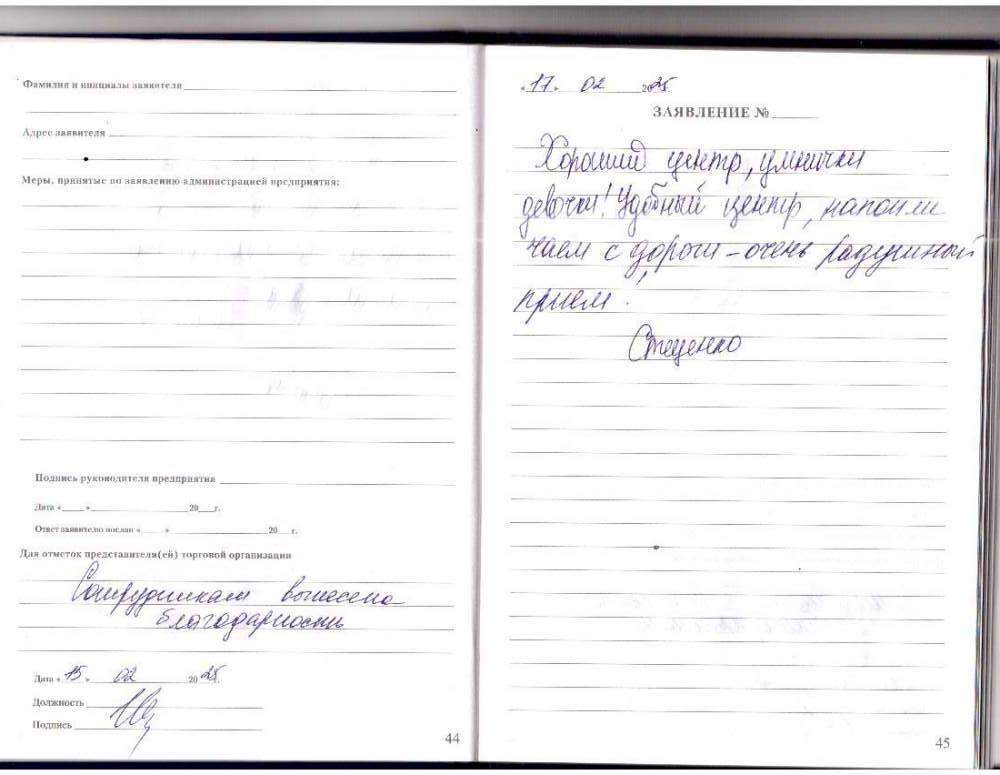 Фамилия и инициалы заявителя
Адрес заявителя
Меры, принятые по заявлению администрацией предприятия:
Подпись руководителя предприятия
Дата « » 20 г.
Ответ заявителю послан « » 20 г.
Для отметок представителя(ей) торговой организации
Сотрудникам вынесена
благодарность
Дата « 15 » 02 2025
Должность
Подпись
44
« 17 » 02 2025
ЗАЯВЛЕНИЕ №
Хороший центр, умнички
девочки! Удобный центр, напоили
чаем с дороги – очень радушный
прием.
Стеценко
45